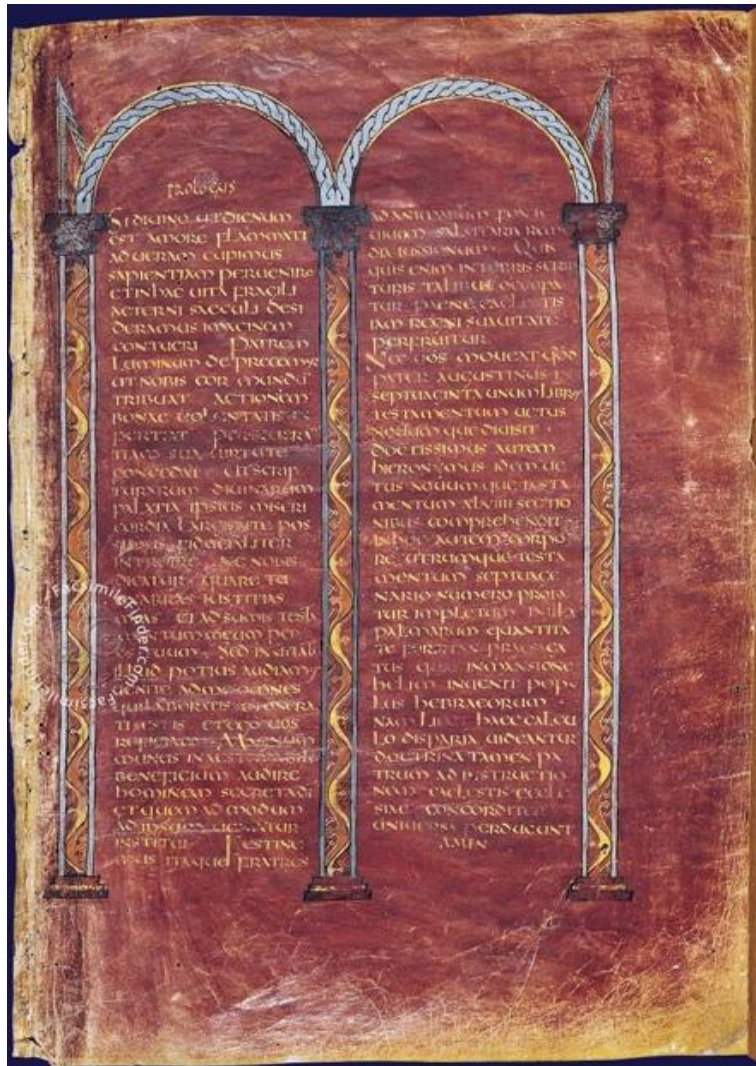 PROLOGUS
SI DIUINO UT DIGNUM
EST AMORE FLAMMATI
AD UERAM CUPIMUS
SAPIENTIAM PERUENIRE
ET IN HAC UITA FRAGILI
AETERNI SAECULI DESI
DERAMUS IMAGINEM
CONTUERI PATREM
LUMINUM DEPRECEMUR
UT NOBIS COR MUNDU
TRIBUAT ACTIONEM
BONAE UOLUNTATIS IN
PERTIAT PERSEUERA
TIAM SUA UIRTUTE
CONCEDAT UT SCRIP
TURARUM DIUINARUM
PALATIA IPSIUS MISERI
CORDIA LARGIENTE POS
SIMUS FIDUCIALITER
INTROIRE NE NOBIS
DICATUR QUARE TU
ENARRAS IUSTITIAS
MEAS ET ADSUMIS TESTA
MENTUM MEUM PER
OS TUUM SED INUITATI
ILLUD POTIUS AUDIAMUS
UENITE AD ME OMNES
QUI LABORATIS ET ONERA
TI ESTIS ET EGO UOS
REFICIAM MAGNUM
MUNUS INAESTIMABILE
BENEFICIUM AUDIRE
HOMINEM SECRETA DI
ET QUEM AD MODUM
AD IPSUM UENIATUR
INSTITUI FESTINE
MUS ITAQUE FRATRES
AD ANIMARUM FONTE
UIUUM SALUTARIA REM
DIA IUSSIONUM QUIS
QUIS ENIM IN TERRIS SCRIP
TURIS TALIBUS OCCUPA
TUR PAENE CAELESTIS
IAM REGNI SUAUITATE
PERFRUITUR
NEC UOS MOUEAT QUOD
PATER AUGUSTINUS IN
SEPTUAGINTA UNUM LIBROS
TESTAMENTUM UETUS
NOUUMQUE DIUISIT
DOCTISSIMUS AUTEM
HIERONYMUS IDEM UE
TUS NOUUMQUE TESTA
MENTUM XLVIIII SECTIO
NIBUS COMPREHENDIT
IN HOC AUTEM CORPO
RE UTRUMQUE TESTA
MENTUM SEPTUAGE
NARIO NUMERO PROBA
TUR IMPLETUM IN ILLA
PALMARUM QUANTITA
TE FORSITAN PRAESAGA
TUS QUAS IN MANSIONE
HELIM INUENIT POPU
LUS HEBRAEORUM
NAM LICET HAEC CALCU
LO DISPARIA UIDEANTUR
DOCTRINA TAMEN PA
TRUM AD INSTRUCTIO
NEM CAELESTIS ECCLE
SIAE CONCORDITER
UNIUERSA PERDUCUNT
AMEN
FacsimileFinder.com